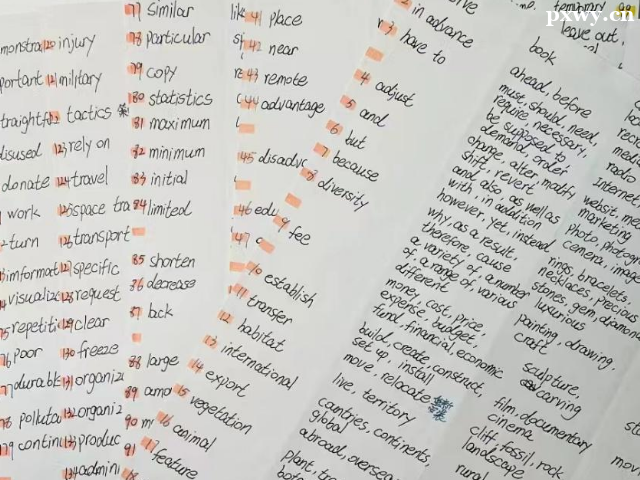 injury
12 military
tactics
123 rely on
124 travel
125 space tra
126 transport
127 specific
128 request
129 clear
130 freeze
131 organiz
132 organiz
133 produc
134 admini
disused
donate
work
turn
poor
77 Similar
78 particular
79 copy
80 statistics
81 maximum
82 minimum
83 initial
84 limited
85 shorten
86 decrease
87 lack
88 large
89 amo
90 m
91
41 place
42 near
43 remote
44 advantage
45 disadvc
46 edu
47
2 in advance
3 have to
4 adjust
5 and
6 but
7 because
8 diversity
9 fee
10 establish
11 transfer
12 habitat
13 international
14 export
15 vegetation
16 animal
17 feature
book
ahead, before
must, should, need,
require, necessary,
be supposed to
demand, order
change, alter, modify
shift, revert
and also as well as
with, in addition
however, yet, instead
why, as a result,
therefore, cause
a variety of, a number
of, a range of, various
different
money, cost, price,
expense, budget,
fund, financial, economic
build, create, construct,
set up, install
move, relocate
live, territory
countries, continents,
global
abroad, oversea
plant, tr
temporary
leave out,
radio
Internet
websit, me
marketing
photo, photogr
camera, imag
rings, bracelets,
necklaces, precious
stones, gem, diamond
luxurious
painting, drawing,
craft
sculpture,
carving
film, documentary
cinema
cliff, fossil, rock
landscape
rural
pxwy.cn